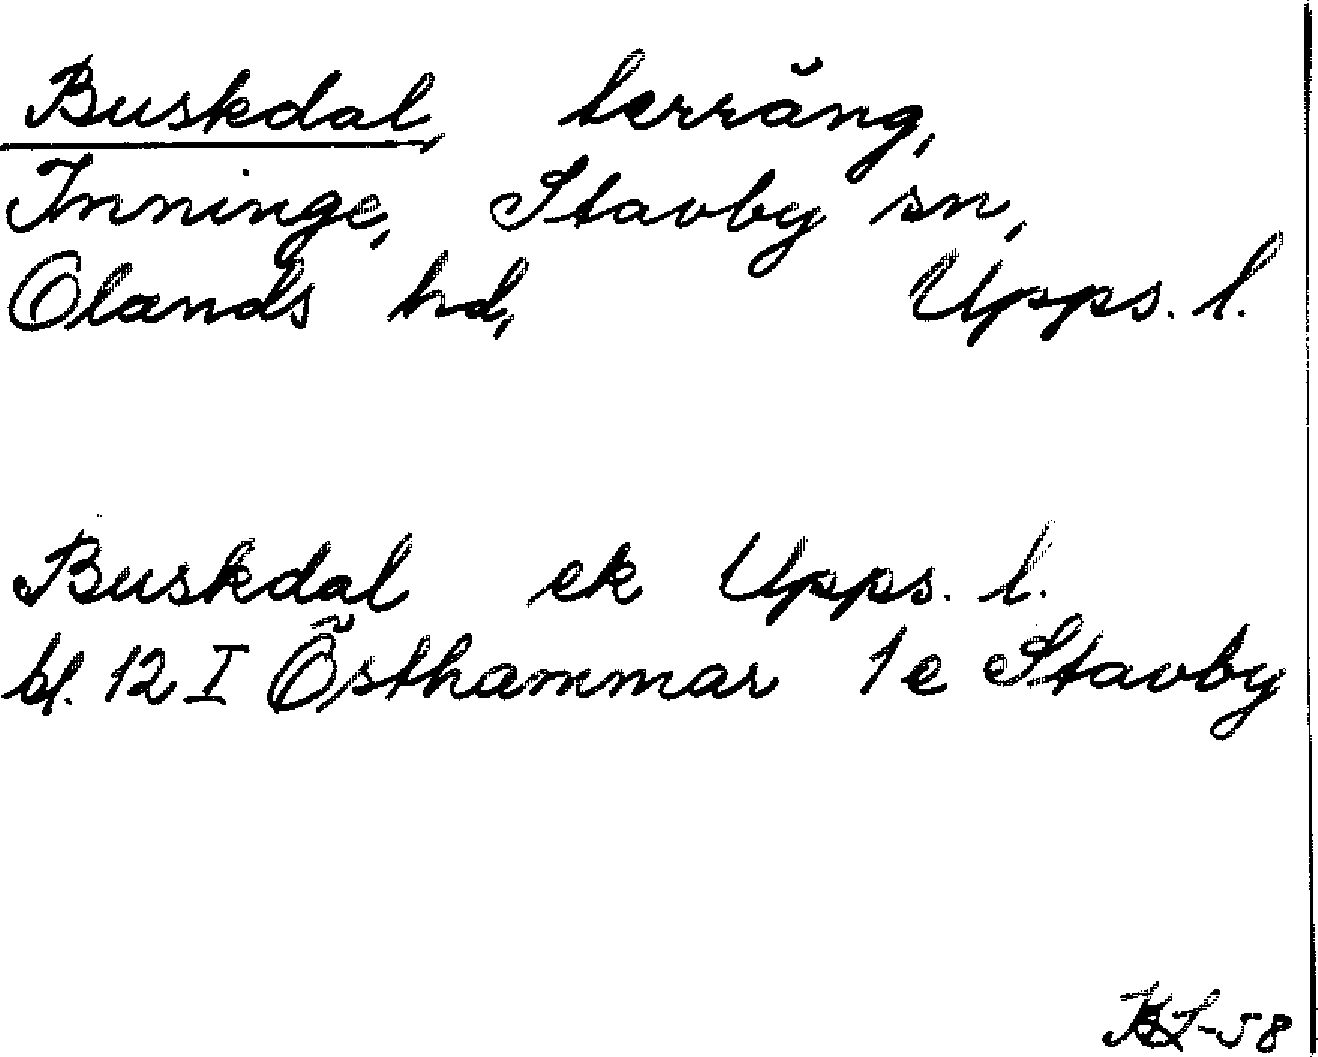 Buskdal, terräng,
Inninge, Stavby sn,
Olands hd, Upps. l.
Buskdal ek Upps. l.
bl. 12 I Östhammar 1e Stavby
KL-58